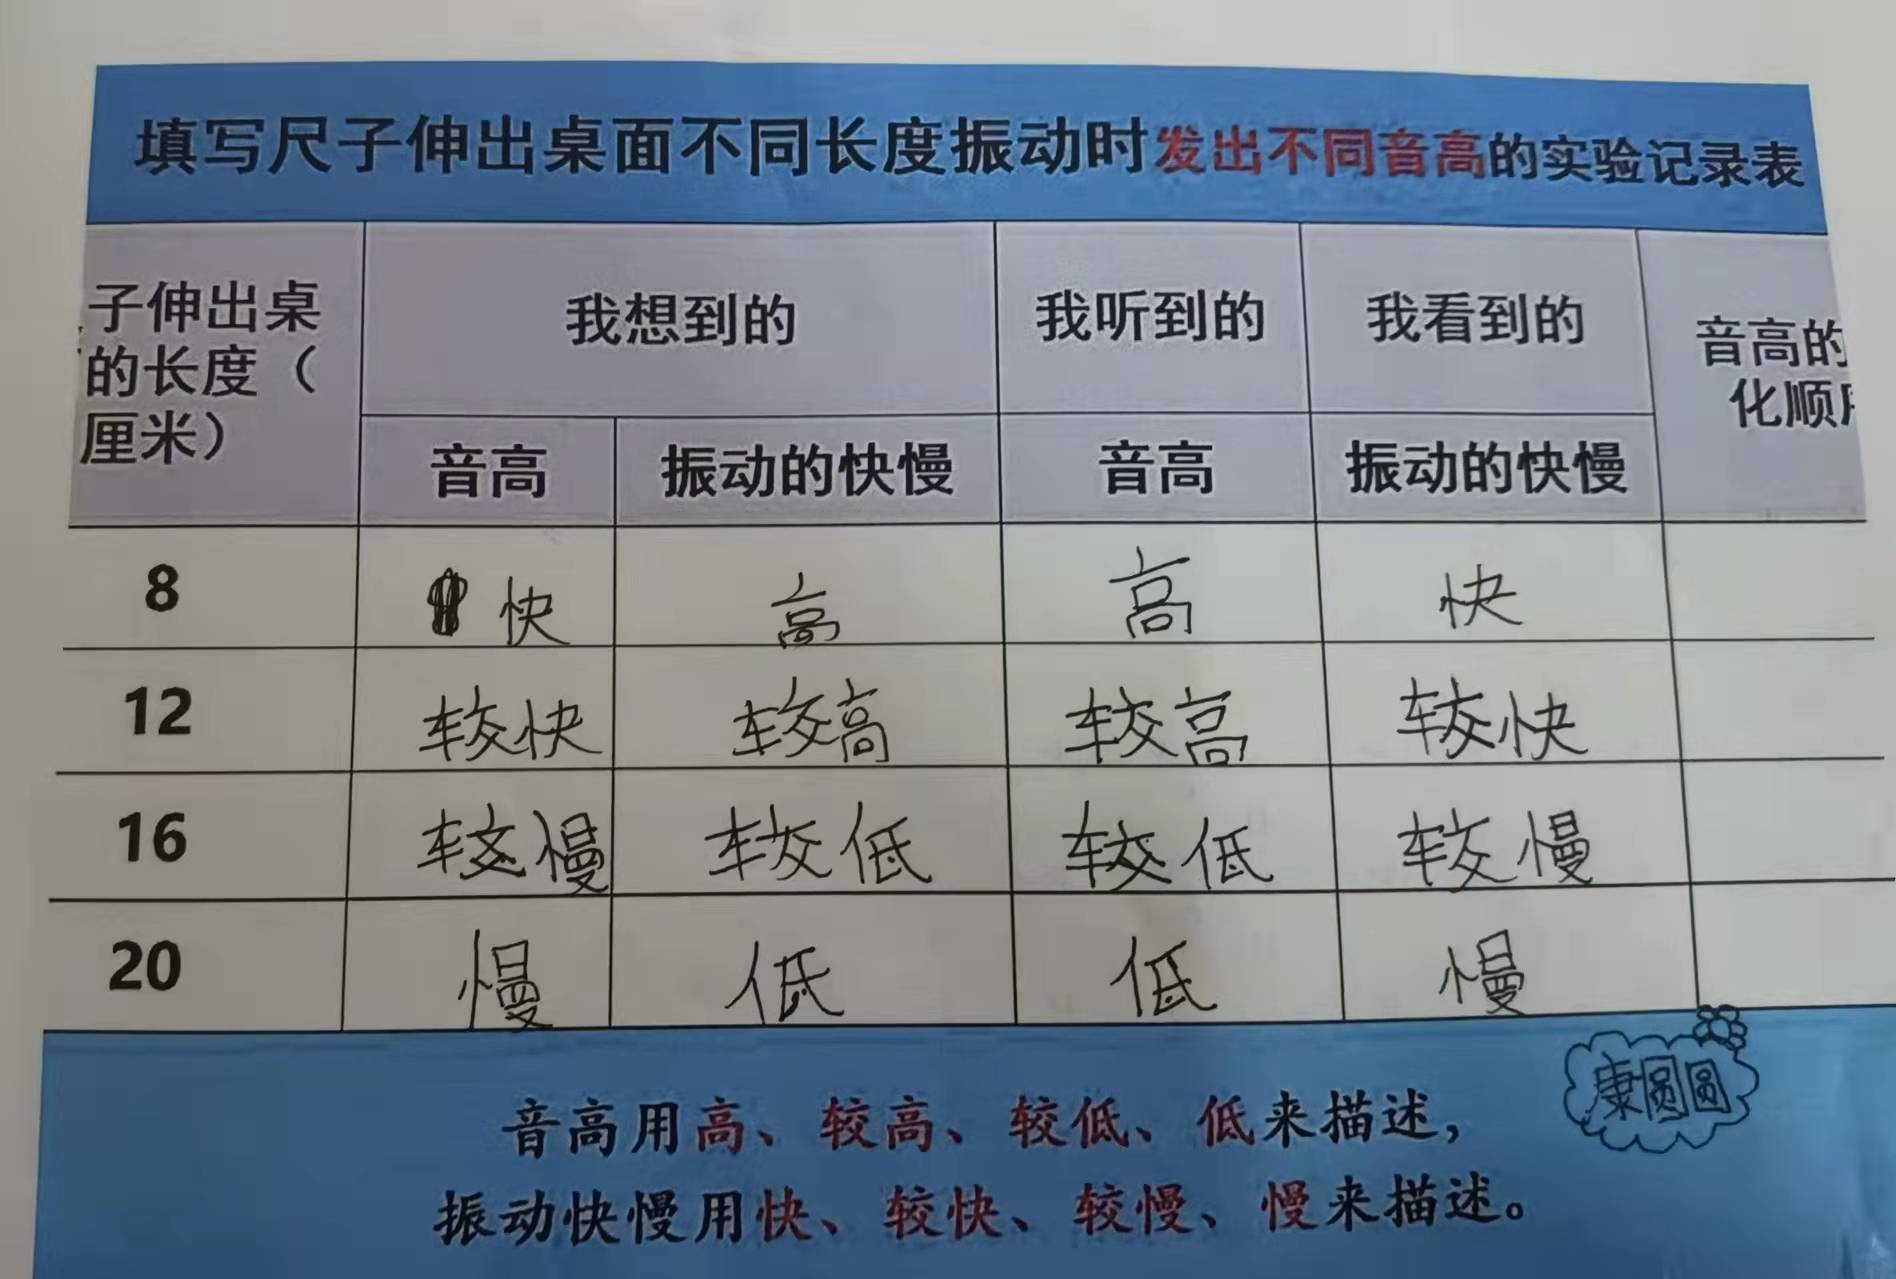 填写尺子伸出桌面不同长度振动时发出不同音高的实验记录表
子伸出桌
的长度（
厘米）
我想到的
我听到的
我看到的
音高的
化顺
音高
振动的快慢
音高
振动的快慢
8
快
高
高
快
12
较快
较高
较高
较快
16
较慢
较低
较低
较慢
20
慢
低
低
慢
康圆圆
音高用高、较高、较低、低来描述，
振动快慢用快、较快、较慢、慢来描述。